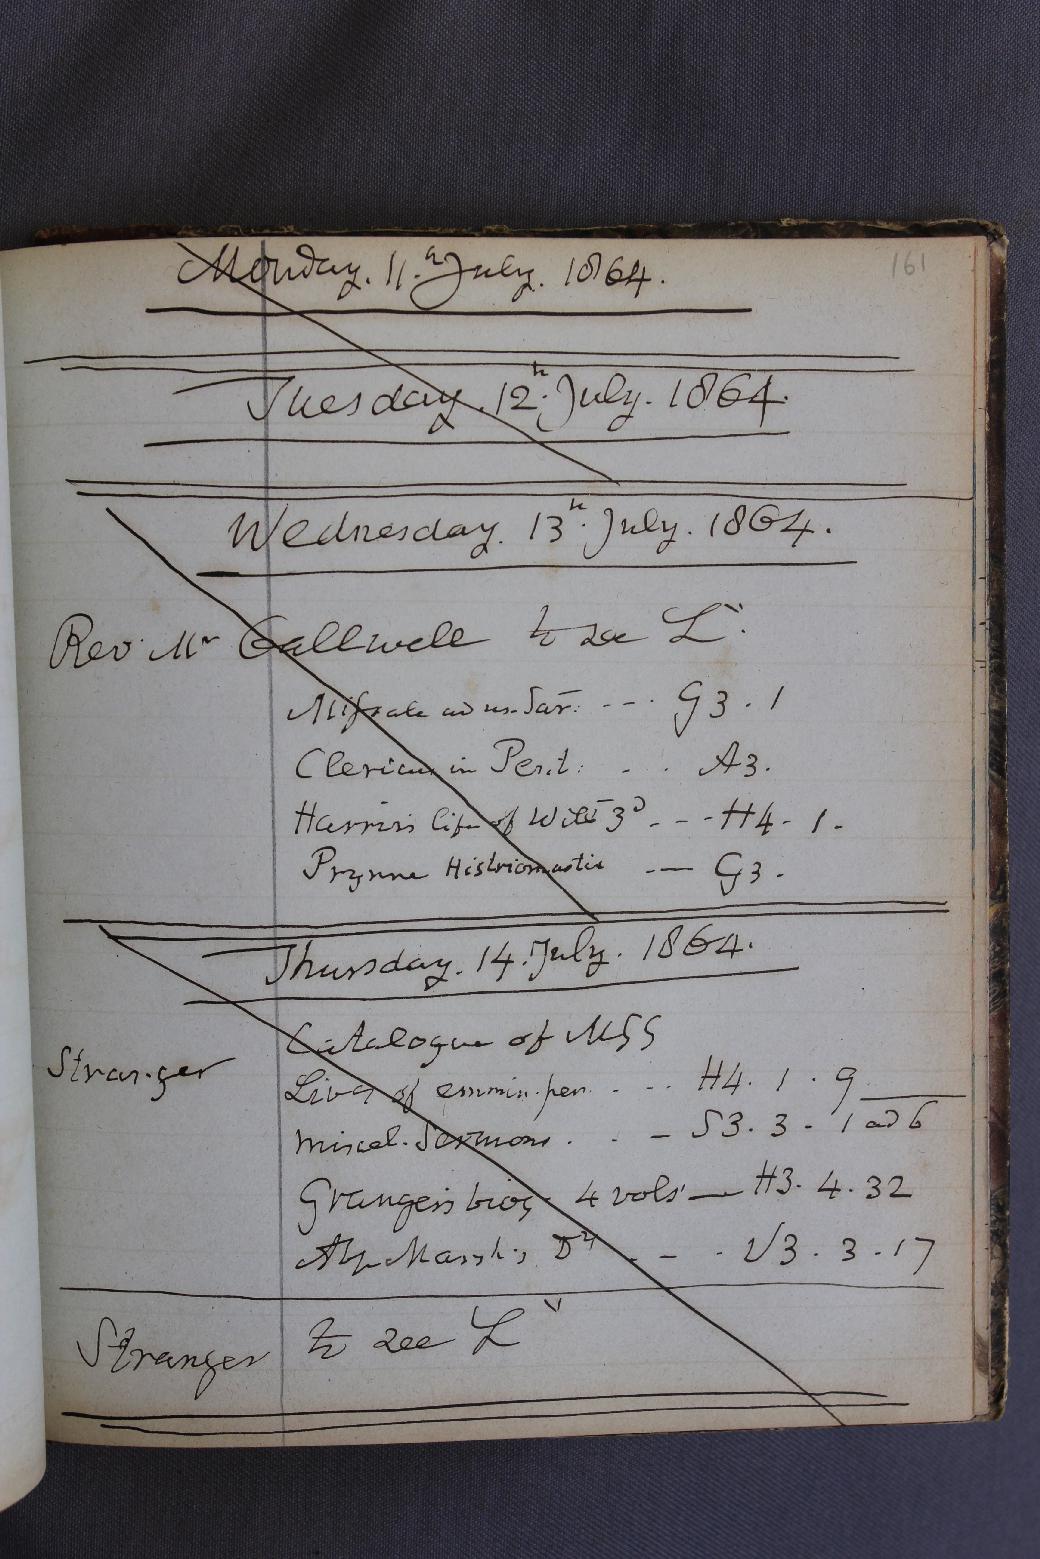 161
Monday. 11.h July. 1864.
Tuesday. 12.h July. 1864.
Wednesday. 13.h July. 1864.
Rev. Mr Gallwell to see L".
Missale ad us. Sar. --- G3. 1
Clericus in Per.t: . . A3.
Harris's life of Will 3D. --- H4. 1.
Prynne Histriomastix — G3.
Thursday. 14. July. 1864.
Catalogue of MSS
Stranger
Lives of emmin. per. . -. H4. 1. 9
Miscel. Sermons. . . - S3. 3. 1 ad 6
Granger's biog. 4 vols — H3. 4. 32
Abp Marsh's - - . V3. 3. 17
Stranger to see L"